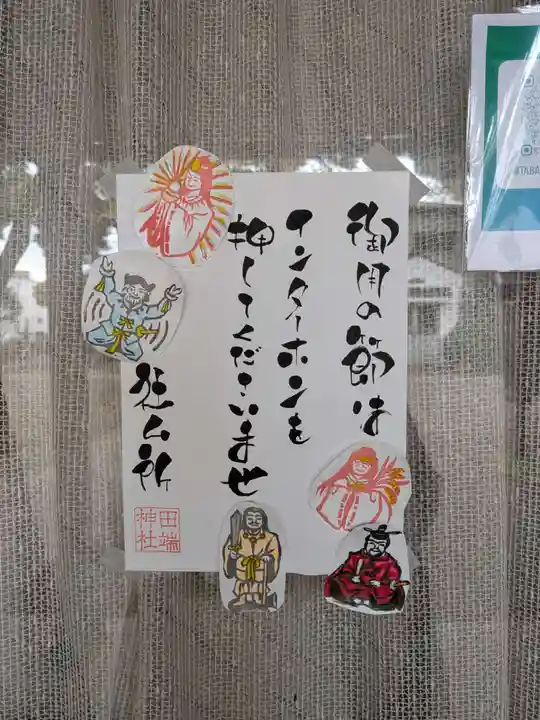 御用の節は
インターホンを
押してくださいませ
社ム所
田端
神社
#TABA